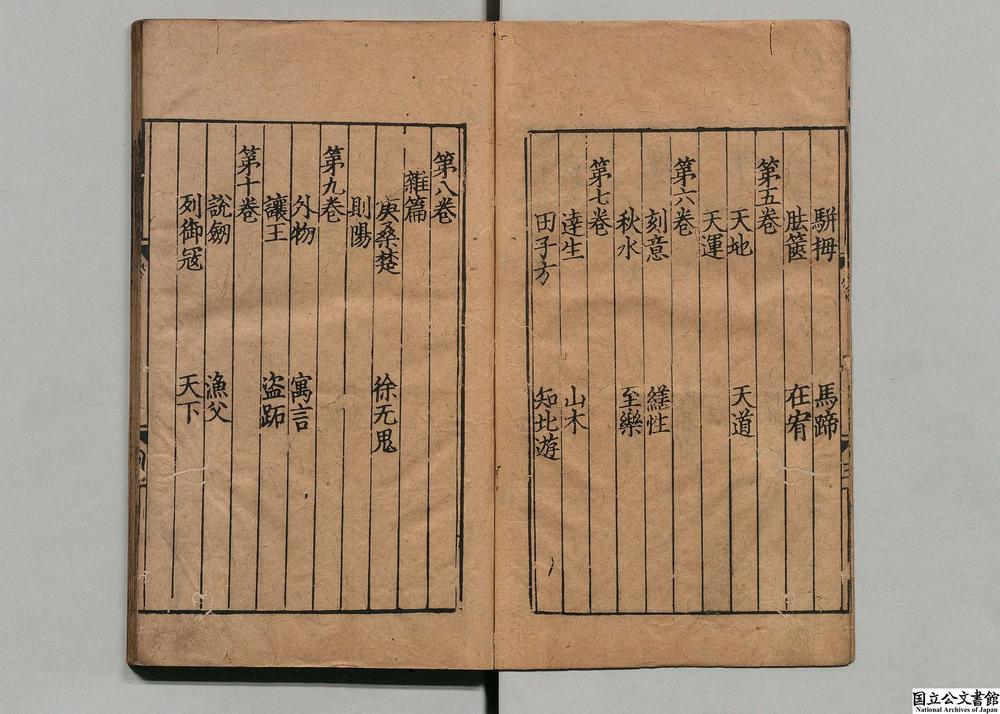 駢拇 馬蹄
胠篋 在宥
第五卷
天地 天道
天運
第六卷
刻意 繕性
秋水 至樂
第七卷
達生 山木
田子方 知北遊
第八卷
雜篇
庚桑楚 徐无鬼
則陽
第九卷
外物 寓言
讓王 盗跖
第十卷
說劒 漁父
列御冦 天下
国立公文書館
National Archives of Japan